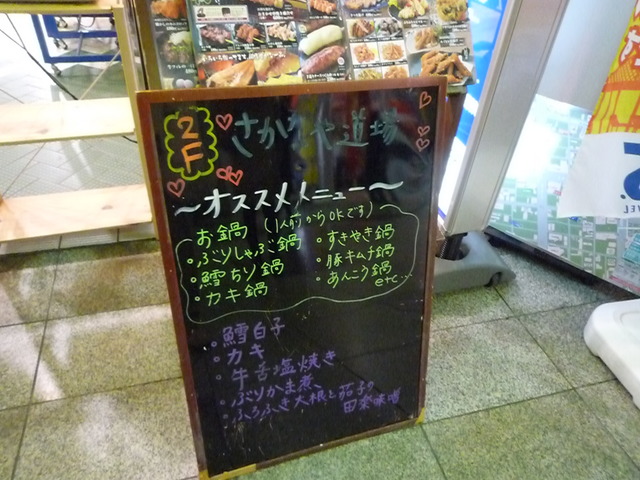 2F
さかなや道場
～オススメメニュー～
お鍋 (1人前からOKです)
・ぶりしゃぶ鍋
・鱈ちり鍋
・カキ鍋
・すきやき鍋
・豚キムチ鍋
・あんこう鍋
etc…
・鱈白子
・カキ
・牛舌塩焼き
・ぶりかま煮
・ふろふき大根と茄子の
田楽味噌